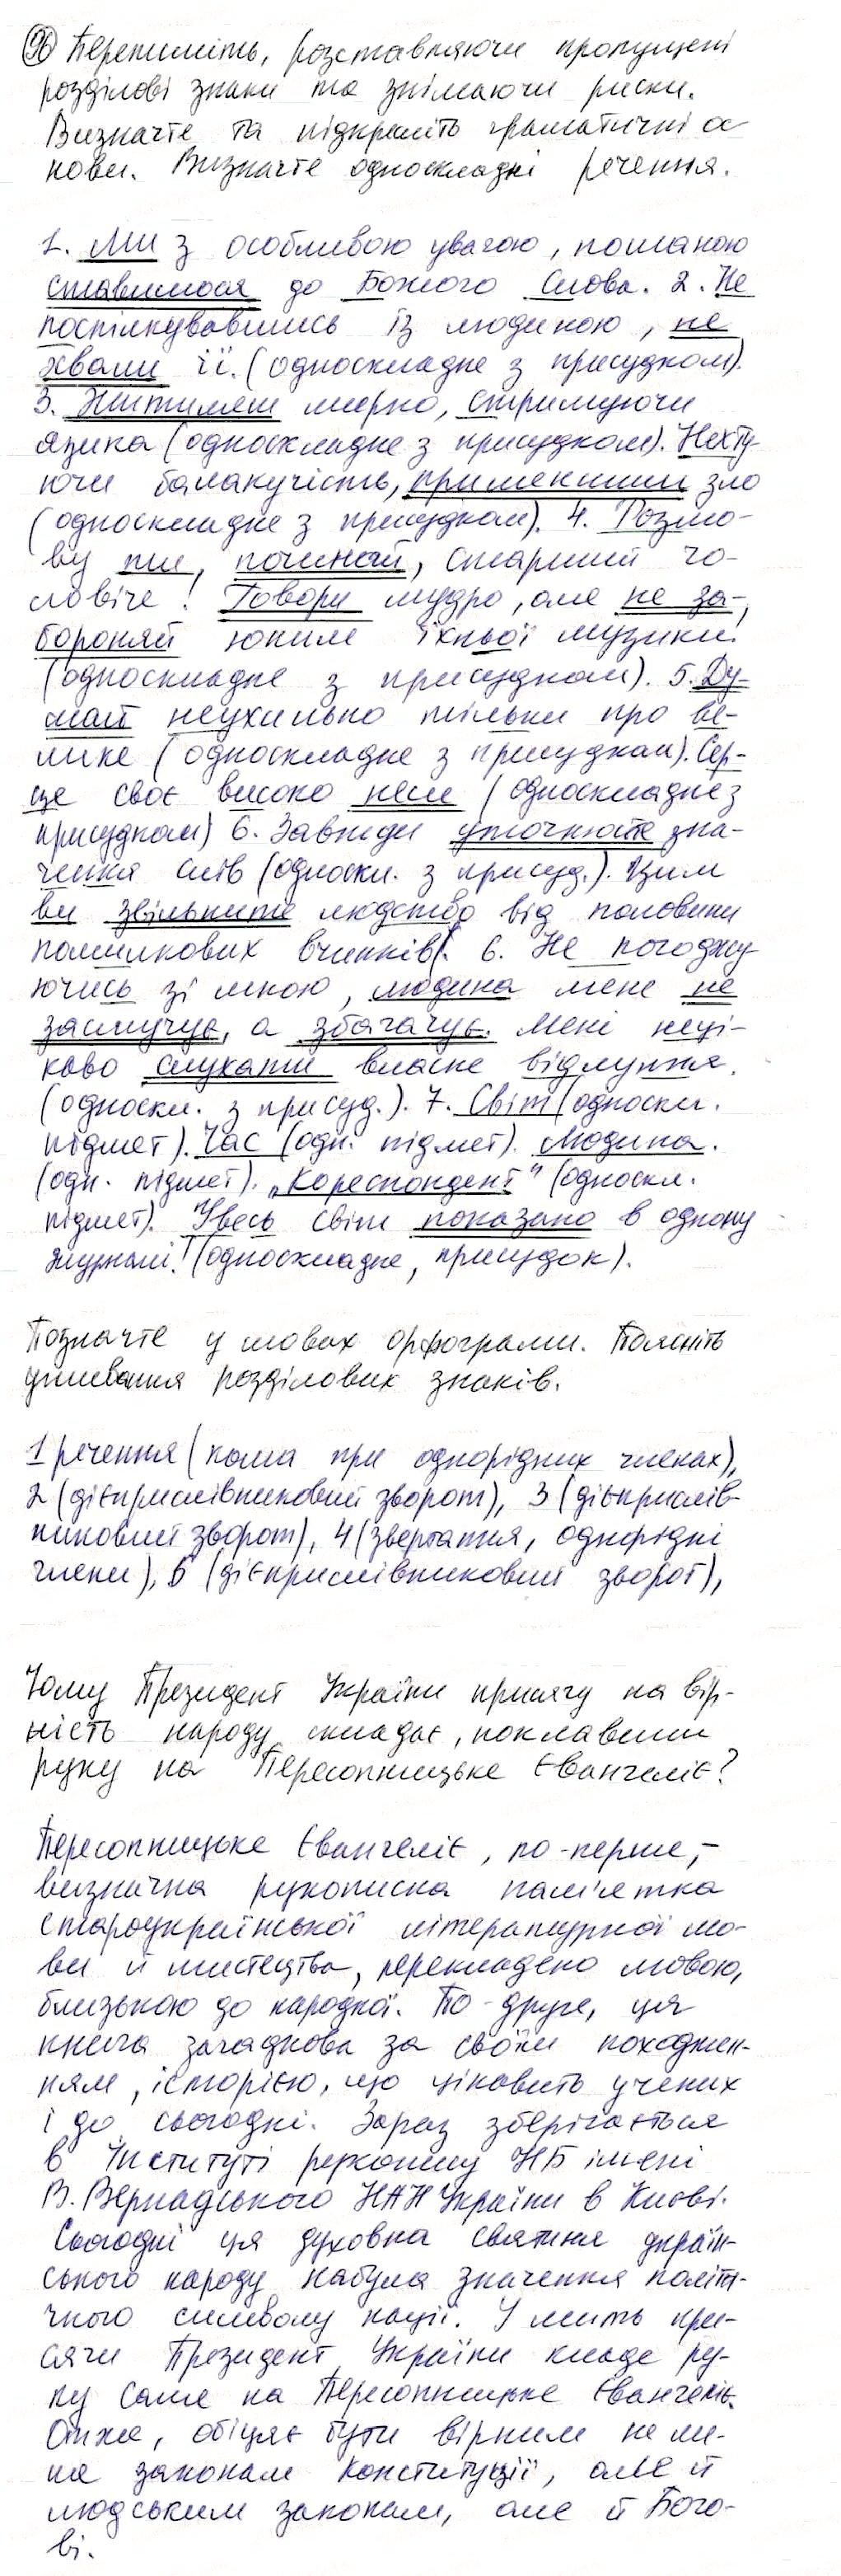 96 Перепишіть, розставляючи пропущені
розділові знаки та знімаючи риски.
Визначте та підкресліть граматичні ос
нови. Визначте односкладні речення.
1. Ми з особливою увагою, пошаною
ставимося до Божого Слова. 2. Не
поспілкувавшись із людиною, не
хвали її. (односкладне з присудком).
3. Житимеш мирно, стримуючи
язика (односкладне з присудком). Нехту-
ючи балакучість, применшиш зло
(односкладне з присудком). 4. Розмо-
ву ти, починай, старший чо-
ловіче! Говори мудро, але не за-
бороняй юним їхньої музики!
(односкладне з присудком). 5. Ду-
май неухильно тільки про ве-
лике (односкладне з присудком). Сер-
це своє високо неси (односкладне з
присудком) 6. Завжди уточнюйте зна-
чення слів (односкл. з присуд.). Цим
ви звільните людство від половини
помилкових вчинків. 6. Не погоджу-
ючись зі мною, людина мене не
засмучує, а збагачує. Мені неці-
каво слухати власне відлуння.
(односкл. з присуд.). 7. Світ (односкл.
підмет). Час (одн. підмет). Людина.
(одн. підмет). „Кореспондент" (односкл.
підмет). Увесь світ показано в одному
журналі! (односкладне, присудок).
Позначте у словах орфограми. Поясніть
уживання розділових знаків.
1 речення (кома при однорідних членах),
2 (дієприслівниковий зворот), 3 (дієприслів-
никовий зворот), 4 (звертання, однорідні
члени), 6 (дієприслівниковий зворот),
Чому Президент України присягу на вір-
ність народу складає, поклавши
руку на Пересопницьке Євангеліє?
Пересопницьке Євангеліє, по-перше, –
визначна рукописна пам'ятка
староукраїнської літературної мо-
ви й мистецтва, перекладено мовою,
близькою до народної. По-друге, ця
книга загадкова за своїм походжен-
ням, історією, що цікавить учених
і до сьогодні. Зараз зберігається
в Інституті рукопису НБ імені
В. Вернадського НАН України в Києві.
Сьогодні ця духовна святиня україн-
ського народу набула значення політи-
чного символу нації. У мить при-
сяги Президент України кладе ру-
ку саме на Пересопницьке Євангеліє.
Отже, обіцяє бути вірним не ли-
ше законам Конституції, але й
людським законам, але й Бого-
ві.